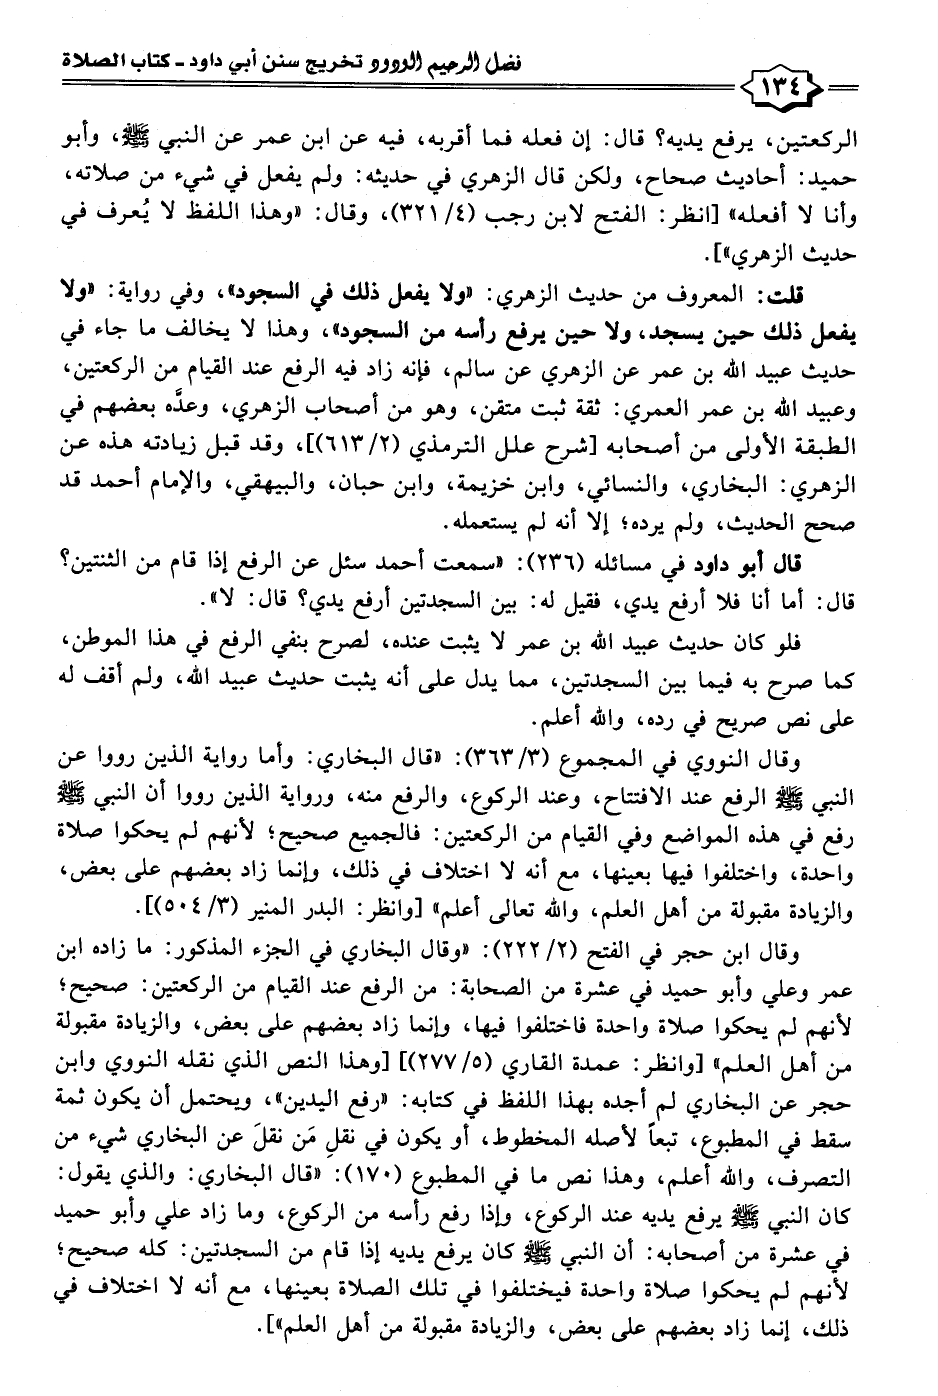 فضل الرحيم الودود تخريج سنن أبي داود - كتاب الصلاة
١٣٤
الركعتين، يرفع يديه؟ قال: إن فعله فما أقربه، فيه عن ابن عمر عن النبي ﷺ، وأبو
حميد: أحاديث صحاح، ولكن قال الزهري في حديثه: ولم يفعل في شيء من صلاته،
وأنا لا أفعله» [انظر: الفتح لابن رجب (٣٢١/٤)، وقال: «وهذا اللفظ لا يُعرف في
حديث الزهري»].
قلت: المعروف من حديث الزهري: «ولا يفعل ذلك في السجود»، وفي رواية: «ولا
يفعل ذلك حين يسجد، ولا حين يرفع رأسه من السجود»، وهذا لا يخالف ما جاء في
حديث عبيد الله بن عمر عن الزهري عن سالم، فإنه زاد فيه الرفع عند القيام من الركعتين،
وعبيد الله بن عمر العمري: ثقة ثبت متقن، وهو من أصحاب الزهري، وعدَّه بعضهم في
الطبقة الأولى من أصحابه [شرح علل الترمذي (٦١٣/٢)]، وقد قبل زيادته هذه عن
الزهري: البخاري، والنسائي، وابن خزيمة، وابن حبان، والبيهقي، والإمام أحمد قد
صحح الحديث، ولم يرده؛ إلا أنه لم يستعمله.
قال أبو داود في مسائله (٢٣٦): «سمعت أحمد سئل عن الرفع إذا قام من الثنتين؟
قال: أما أنا فلا أرفع يدي، فقيل له: بين السجدتين أرفع يدي؟ قال: لا».
فلو كان حديث عبيد الله بن عمر لا يثبت عنده، لصرح بنفي الرفع في هذا الموطن،
كما صرح به فيما بين السجدتين، مما يدل على أنه يثبت حديث عبيد الله، ولم أقف له
على نص صريح في رده، والله أعلم.
وقال النووي في المجموع (٣٦٣/٣): «قال البخاري: وأما رواية الذين رووا عن
النبي ﷺ الرفع عند الافتتاح، وعند الركوع، والرفع منه، ورواية الذين رووا أن النبي ﷺ
رفع في هذه المواضع وفي القيام من الركعتين: فالجميع صحيح؛ لأنهم لم يحكوا صلاة
واحدة، واختلفوا فيها بعينها، مع أنه لا اختلاف في ذلك، وإنما زاد بعضهم على بعض،
والزيادة مقبولة من أهل العلم، والله تعالى أعلم» [وانظر: البدر المنير (٥٠٤/٣)].
وقال ابن حجر في الفتح (٢٢٢/٢): «وقال البخاري في الجزء المذكور: ما زاده ابن
عمر وعلي وأبو حميد في عشرة من الصحابة: من الرفع عند القيام من الركعتين: صحيح؛
لأنهم لم يحكوا صلاة واحدة فاختلفوا فيها، وإنما زاد بعضهم على بعض، والزيادة مقبولة
من أهل العلم» [وانظر: عمدة القاري (٢٧٧/٥)] [وهذا النص الذي نقله النووي وابن
حجر عن البخاري لم أجده بهذا اللفظ في كتابه: «رفع اليدين»، ويحتمل أن يكون ثمة
سقط في المطبوع، تبعاً لأصله المخطوط، أو يكون في نقلِ مَن نقلَ عن البخاري شيء من
التصرف، والله أعلم، وهذا نص ما في المطبوع (١٧٠): «قال البخاري: والذي يقول:
كان النبي ﷺ يرفع يديه عند الركوع، وإذا رفع رأسه من الركوع، وما زاد علي وأبو حميد
في عشرة من أصحابه: أن النبي ﷺ كان يرفع يديه إذا قام من السجدتين: كله صحيح؛
لأنهم لم يحكوا صلاة واحدة فيختلفوا في تلك الصلاة بعينها، مع أنه لا اختلاف في
ذلك، إنما زاد بعضهم على بعض، والزيادة مقبولة من أهل العلم»].